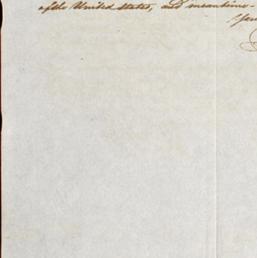 of the United States, and meantime-